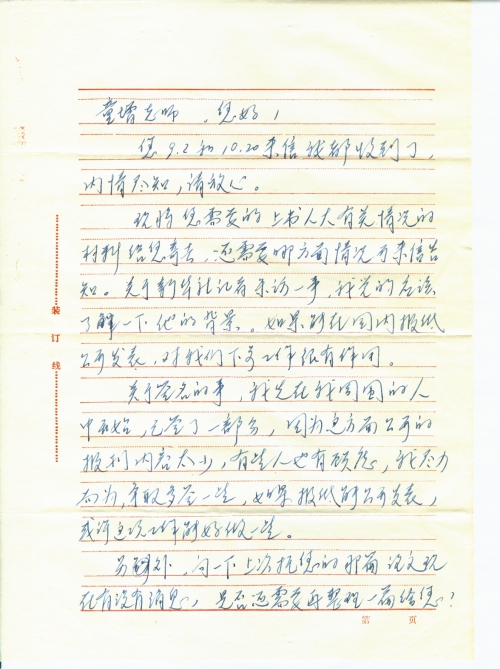 童增老师，您好！
您9.2和10.20来信我都收到了，
内情尽知，请放心。
现将您需要的上书人大有关情况的
材料给您寄去，还需要哪方面情况可来信告
知。关于新华社记者采访一事，我觉的应该
了解一下他的背景。如果能在国内报纸
公开发表，对我们下步工作很有作用。
关于签名的事，我先在我周围的人
中开始，已签了一部分，因为这方面公开的
报刊内容太少，有些人也有顾虑，我尽力
而为，争取多签一些，如果报纸能公开发表，
或许这项工作能好做一些。
另外，问一下上次托您的那篇论文现
在有没有消息，是否还需要再整理一篇给您？
装订线
第 页